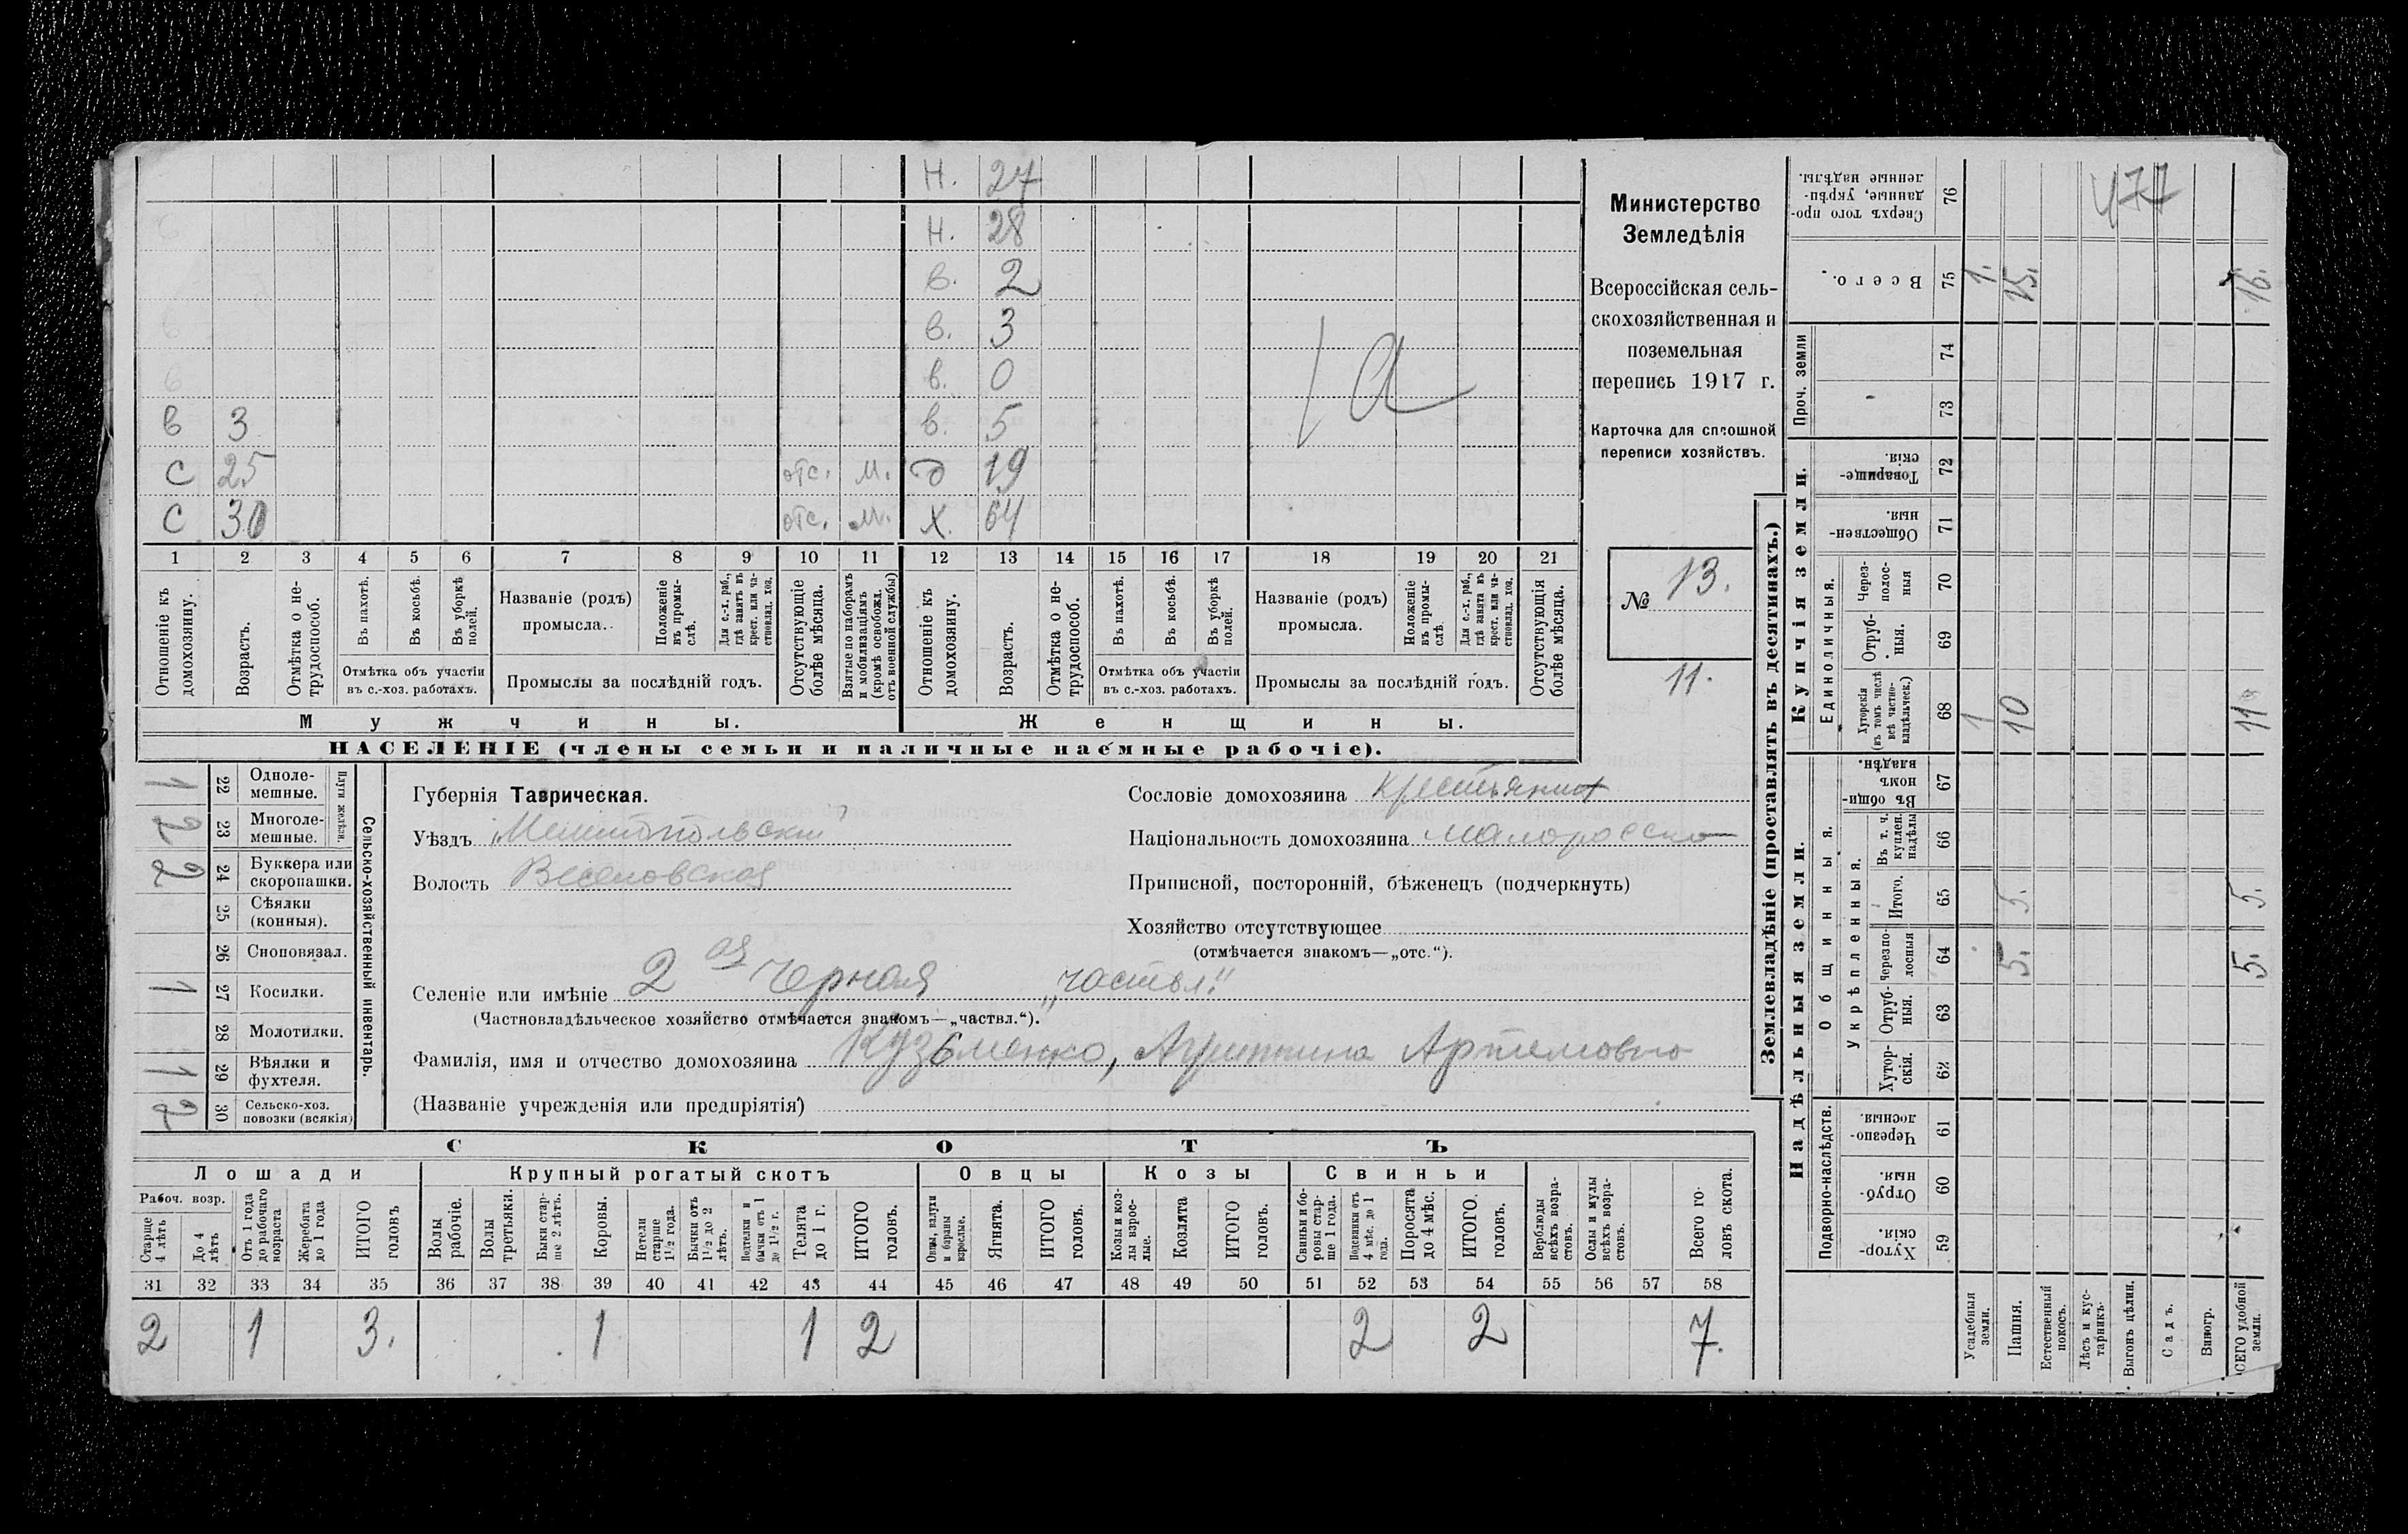 Н. 27
Н. 28
в. 2
в. 3
в. 0
в 3 в. 5
с 25 отс. м. д 19
с 30 отс. м. х. 64
1а
1 2 3 4 5 6 7 8 9 10 11 12 13 14 15 16 17 18 19 20 21
Отношеніе къ домохозяину.
Возрастъ.
Отмѣтка о не-
трудоспособ.
Въ пахотѣ.
Въ косьбѣ.
Въ уборкѣ полей.
Отмѣтка объ участіи
въ с.-хоз. работахъ.
Названіе (родъ)
промысла.
Положеніе
въ промы-
слѣ.
Для с.-х. раб.,
гдѣ занятъ въ
крест. или ча-
стновлад. хоз.
Промыслы за послѣдній годъ.
Отсутствующіе
болѣе мѣсяца.
Взятые по наборамъ
и мобилизаціямъ
(кромѣ освобожд.
отъ военной службы)
Отношеніе къ домохозяину.
Возрастъ.
Отмѣтка о не-
трудоспособ.
Въ пахотѣ.
Въ косьбѣ.
Въ уборкѣ полей.
Отмѣтка объ участіи
въ с.-хоз. работахъ.
Названіе (родъ)
промысла.
Положеніе
въ промы-
слѣ.
Для с.-х. раб.,
гдѣ занята въ
крест. или ча-
стновлад. хоз.
Промыслы за послѣдній годъ.
Отсутствующія
болѣе мѣсяца.
Мужчины. Женщины.
НАСЕЛЕНІЕ (члены семьи и наличные наемные рабочіе).
Министерство
Земледѣлія
Всероссійская сель-
скохозяйственная и
поземельная
перепись 1917 г.
Карточка для сплошной
переписи хозяйствъ.
№ 13.
11.
Сельско-хозяйственный инвентарь.
Плуги желѣзн.
1 22 Одноле-
мешные.
2 23 Многоле-
мешные.
2 24 Буккера или
скоропашки.
25 Сѣялки
(конныя).
26 Сноповязал.
1 27 Косилки.
28 Молотилки.
1 29 Вѣялки и
фухтеля.
2 30 Сельско-хоз.
повозки (всякія)
Губернія Таврическая.
Уѣздъ Мелитопольскій
Волость Веселовская
Сословіе домохозяина крестьянин
Національность домохозяина малоросска
Приписной, посторонній, бѣженецъ (подчеркнуть)
Хозяйство отсутствующее
(отмѣчается знакомъ—„отс.“).
Селеніе или имѣніе 2ая Черная „частвл.“
(Частновладѣльческое хозяйство отмѣчается знакомъ—„частвл.“).
Фамилія, имя и отчество домохозяина Кузьменко, Агриппина Артемовна
(Названіе учрежденія или предпріятія)
СКОТЪ
Лошади Крупный рогатый скотъ Овцы Козы Свиньи
Рабоч. возр.
Старше
4 лѣтъ
До 4
лѣтъ
Отъ 1 года
до рабочаго
возраста
Жеребята
до 1 года
ИТОГО
головъ
Волы
рабочіе.
Волы
третьяки.
Быки стар-
ше 2 лѣтъ.
Коровы.
Нетели
старше
1½ года.
Бычки отъ
1½ до 2
лѣтъ.
Подтелки и
бычки отъ 1
до 1½ г.
Телята
до 1 г.
ИТОГО
головъ.
Овцы, валухи
и бараны
взрослые.
Ягнята.
ИТОГО
головъ.
Козы и коз-
лы взрос-
лые.
Козлята
ИТОГО
головъ.
Свиньи и бо-
ровы стар-
ше 1 года.
Подсвинки отъ
4 мѣс. до 1
года.
Поросята
до 4 мѣс.
ИТОГО
головъ.
Верблюды
всѣхъ возра-
стовъ.
Ослы и мулы
всѣхъ возра-
стовъ.
Всего го-
ловъ скота.
31 32 33 34 35 36 37 38 39 40 41 42 43 44 45 46 47 48 49 50 51 52 53 54 55 56 57 58
2 1 3. 1 1 2 2 2 7.
Землевладѣніе (проставлять въ десятинахъ.)
Купчія земли.
Надѣльныя земли.
Сверхъ того про-
данные, укрѣп-
ленные надѣлы.
76
477
Всего.
75 1. 15. 16.
Проч. земли
74
73
Товарище-
скія.
72
Обществен-
ныя.
71
Единоличныя.
Через-
полос-
ныя
70
Отруб-
ныя.
69
Хуторскія
(въ томъ числѣ
всѣ частно-
владѣльческ.)
68 1 10 11
Общинныя.
Въ общи-
номъ
владѣн.
67
Укрѣпленныя.
Въ т. ч.
куплен.
надѣлы
66
Итого.
65 5. 5.
Черезпо-
лосныя
64 5. 5.
Отруб-
ныя.
63
Хутор-
скія.
62
Подворно-наслѣдств.
Черезпо-
лосныя.
61
Отруб-
ныя.
60
Хутор-
скія.
59
Усадебныя
земли.
Пашня.
Естественный
покосъ.
Лѣсъ и кус-
тарникъ.
Выгонъ цѣлин.
Садъ.
Виногр.
ВСЕГО удобной
земли.